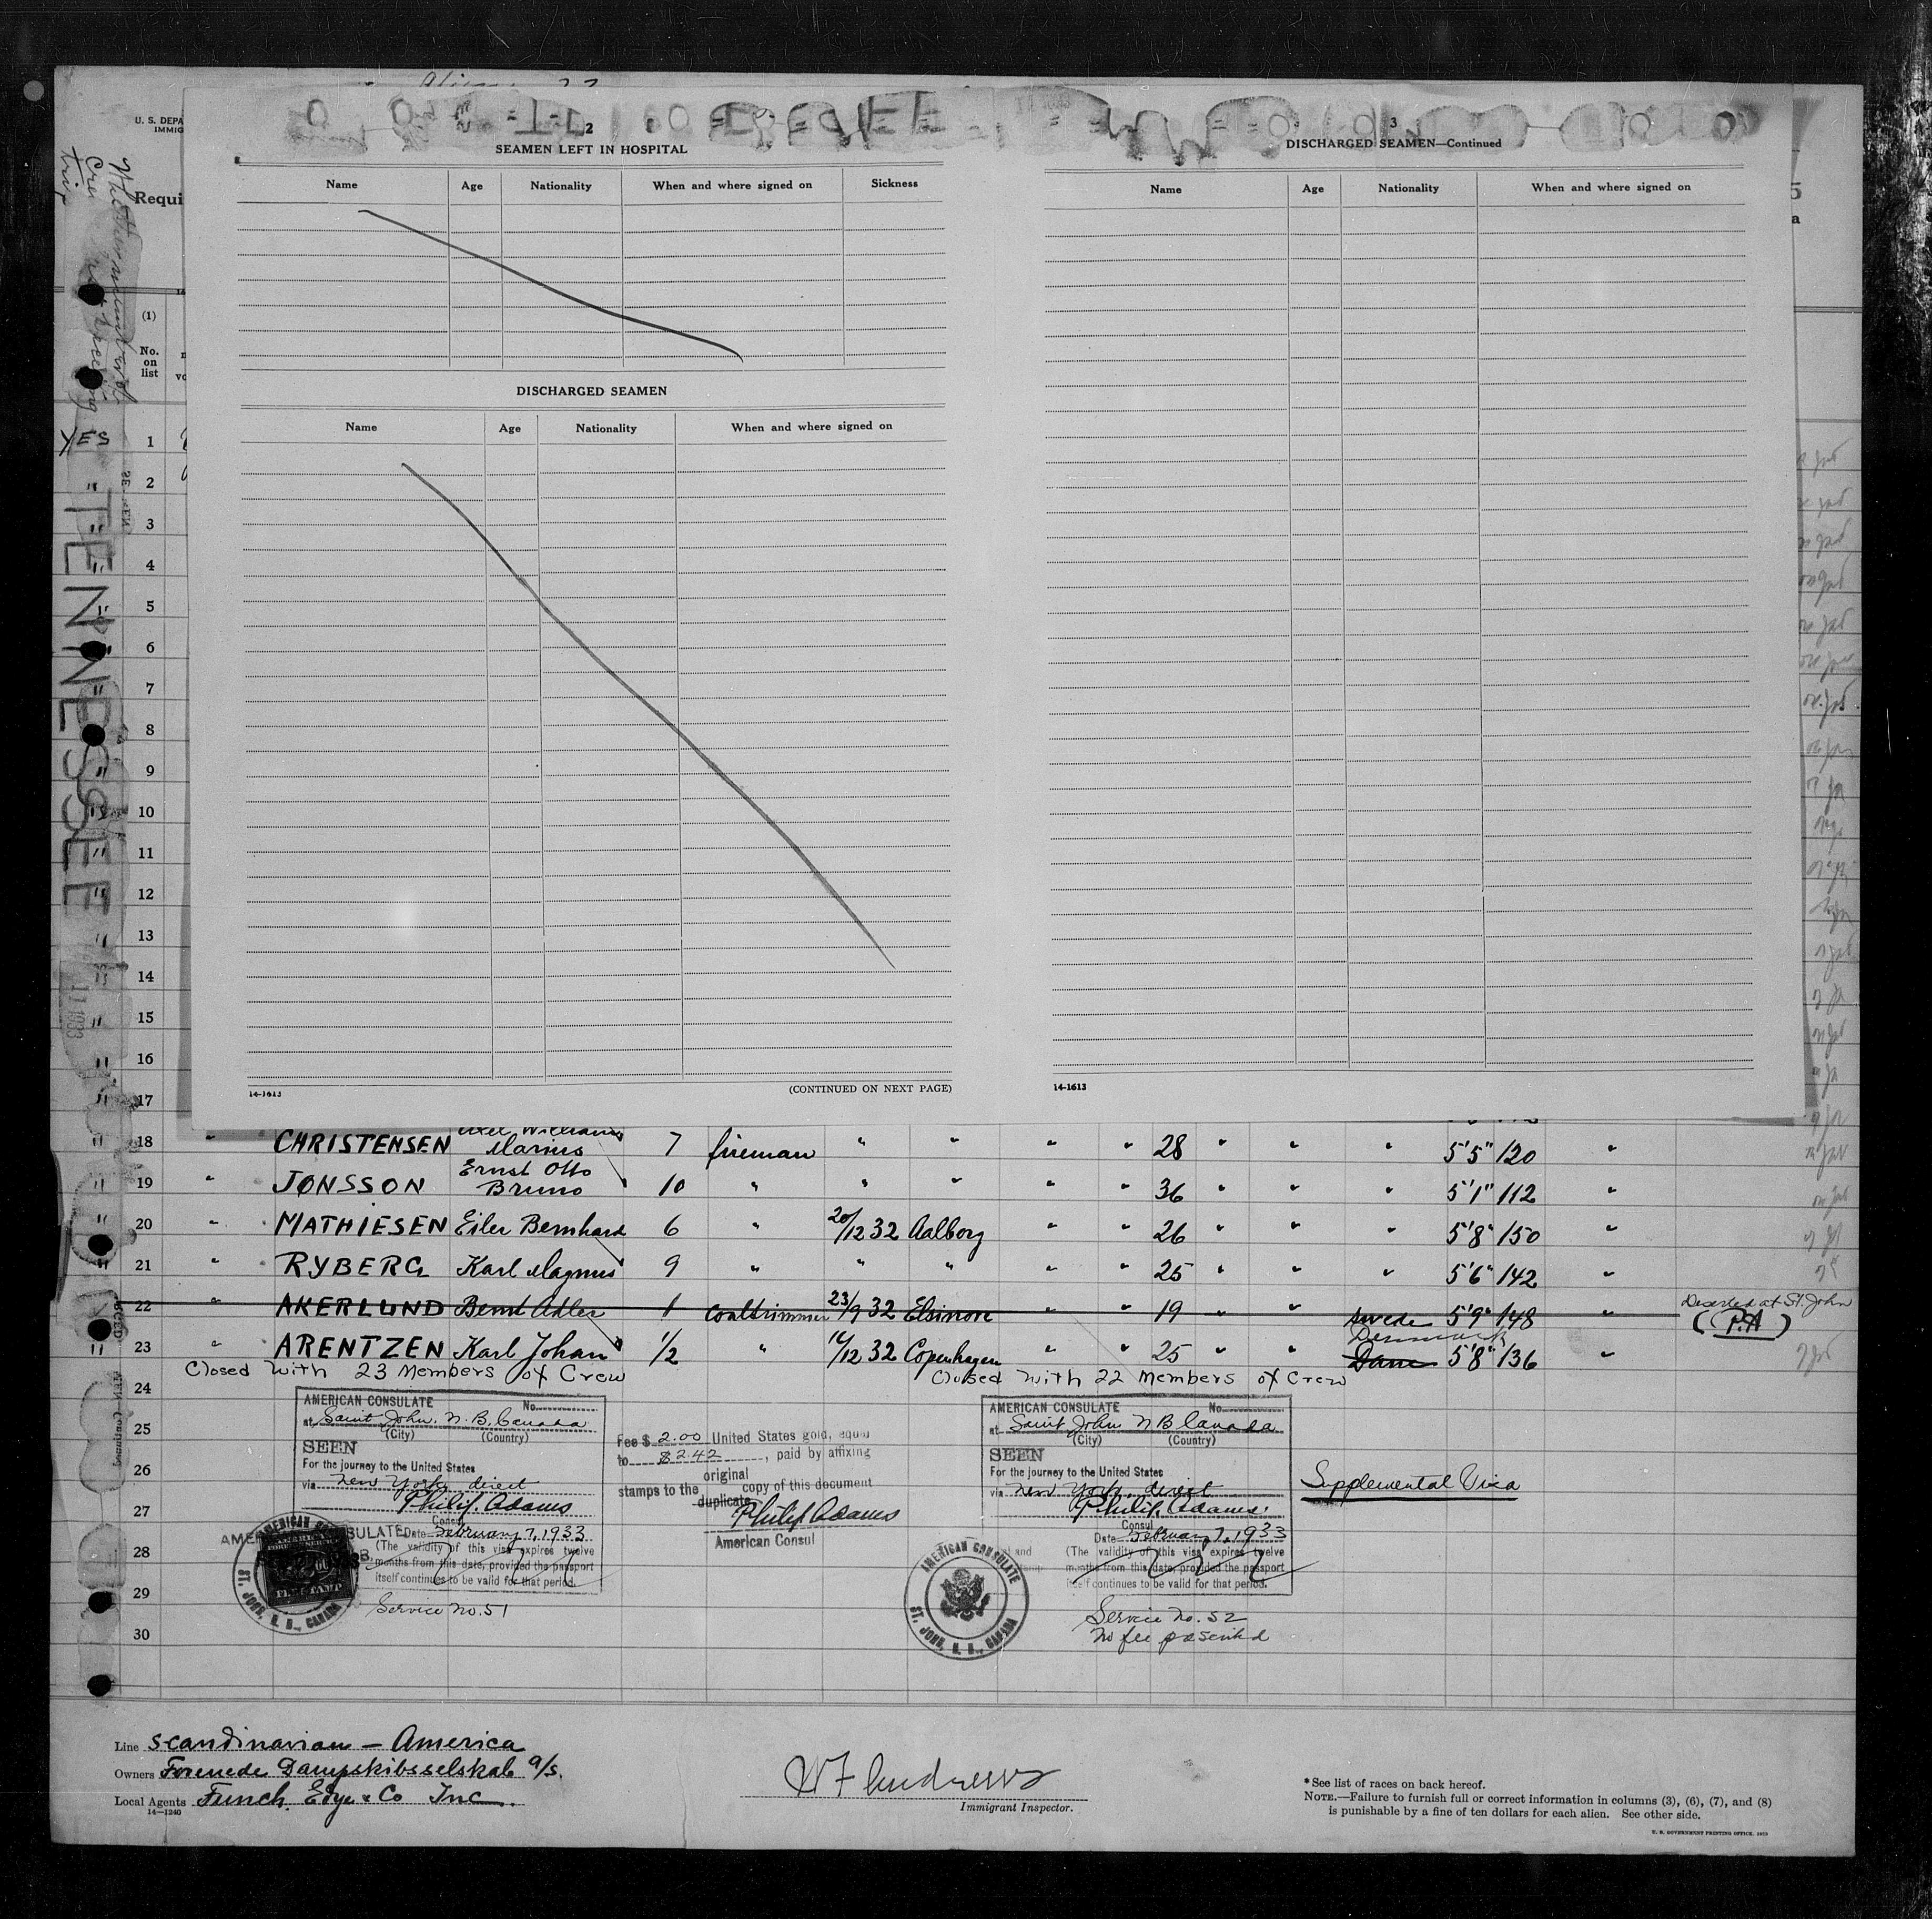 U. S. DEPA
IMMIG
Requi
2
SEAMEN LEFT IN HOSPITAL
Name Age Nationality When and where signed on Sickness
DISCHARGED SEAMEN
Name Age Nationality When and where signed on
14-1613
(CONTINUED ON NEXT PAGE)
3
DISCHARGED SEAMEN—Continued
Name Age Nationality When and where signed on
14-1613
(1)
No.
on
list
YES 1
" 2
" 3
" 4
" 5
" 6
" 7
" 8
" 9
" 10
" 11
" 12
" 13
" 14
" 15
" 16
17
TENNESSEE
18 " CHRISTENSEN Marius 7 fireman " " " " 28 " " " 5'5" 120 "
19 " JONSSON Ernst Otto Bruno 10 " " " " " 36 " " " 5'1" 112 "
20 " MATHIESEN Eiler Bernhard 6 " 20/12 32 Aalborg " " 26 " " " 5'8" 150 "
21 " RYBERG Karl Magnus 9 " " " " " 25 " " " 5'6" 142 "
22 " AKERLUND Bernt Adler 1 coaltrimmer 23/9 32 Elsinore " " 19 " " swede 5'9" 148 " Deserted at St. John
(P.A)
23 " ARENTZEN Karl Johan 1/2 " 16/12 32 Copenhagen " " 25 " " Dane Denmark 5'8" 136 "
Closed with 23 Members of Crew
Closed with 22 Members of Crew
24
25
26
27
28
29
30
AMERICAN CONSULATE No.
at Saint John, N. B. Canada
(City) (Country)
SEEN
For the journey to the United States
via New York direct
Philip Adams
Consul
Date February 7, 1933
(The validity of this visa expires twelve
months from this date, provided the passport
itself continues to be valid for that period.
Service No. 51
AMERICAN CONSULATE
ST. JOHN, N. B., CANADA
Fee $ 2.00 United States gold, equal
to $2.42, paid by affixing
stamps to the original duplicate copy of this document
Philip Adams
American Consul
AMERICAN CONSULATE No.
at Saint John N B Canada
(City) (Country)
SEEN
For the journey to the United States
via New York, direct
Philip Adams
Consul
Date February 7, 1933
(The validity of this visa expires twelve
months from this date, provided the passport
itself continues to be valid for that period.
Supplemental Visa
AMERICAN CONSULATE
ST. JOHN, N. B., CANADA
Service No. 52
No fee prescribed
Line Scandinavian – America
Owners Forenede Dampskibsselskab A/S.
Local Agents Funch, Edye & Co Inc.
14—1240
Immigrant Inspector.
* See list of races on back hereof.
NOTE.—Failure to furnish full or correct information in columns (3), (6), (7), and (8)
is punishable by a fine of ten dollars for each alien. See other side.